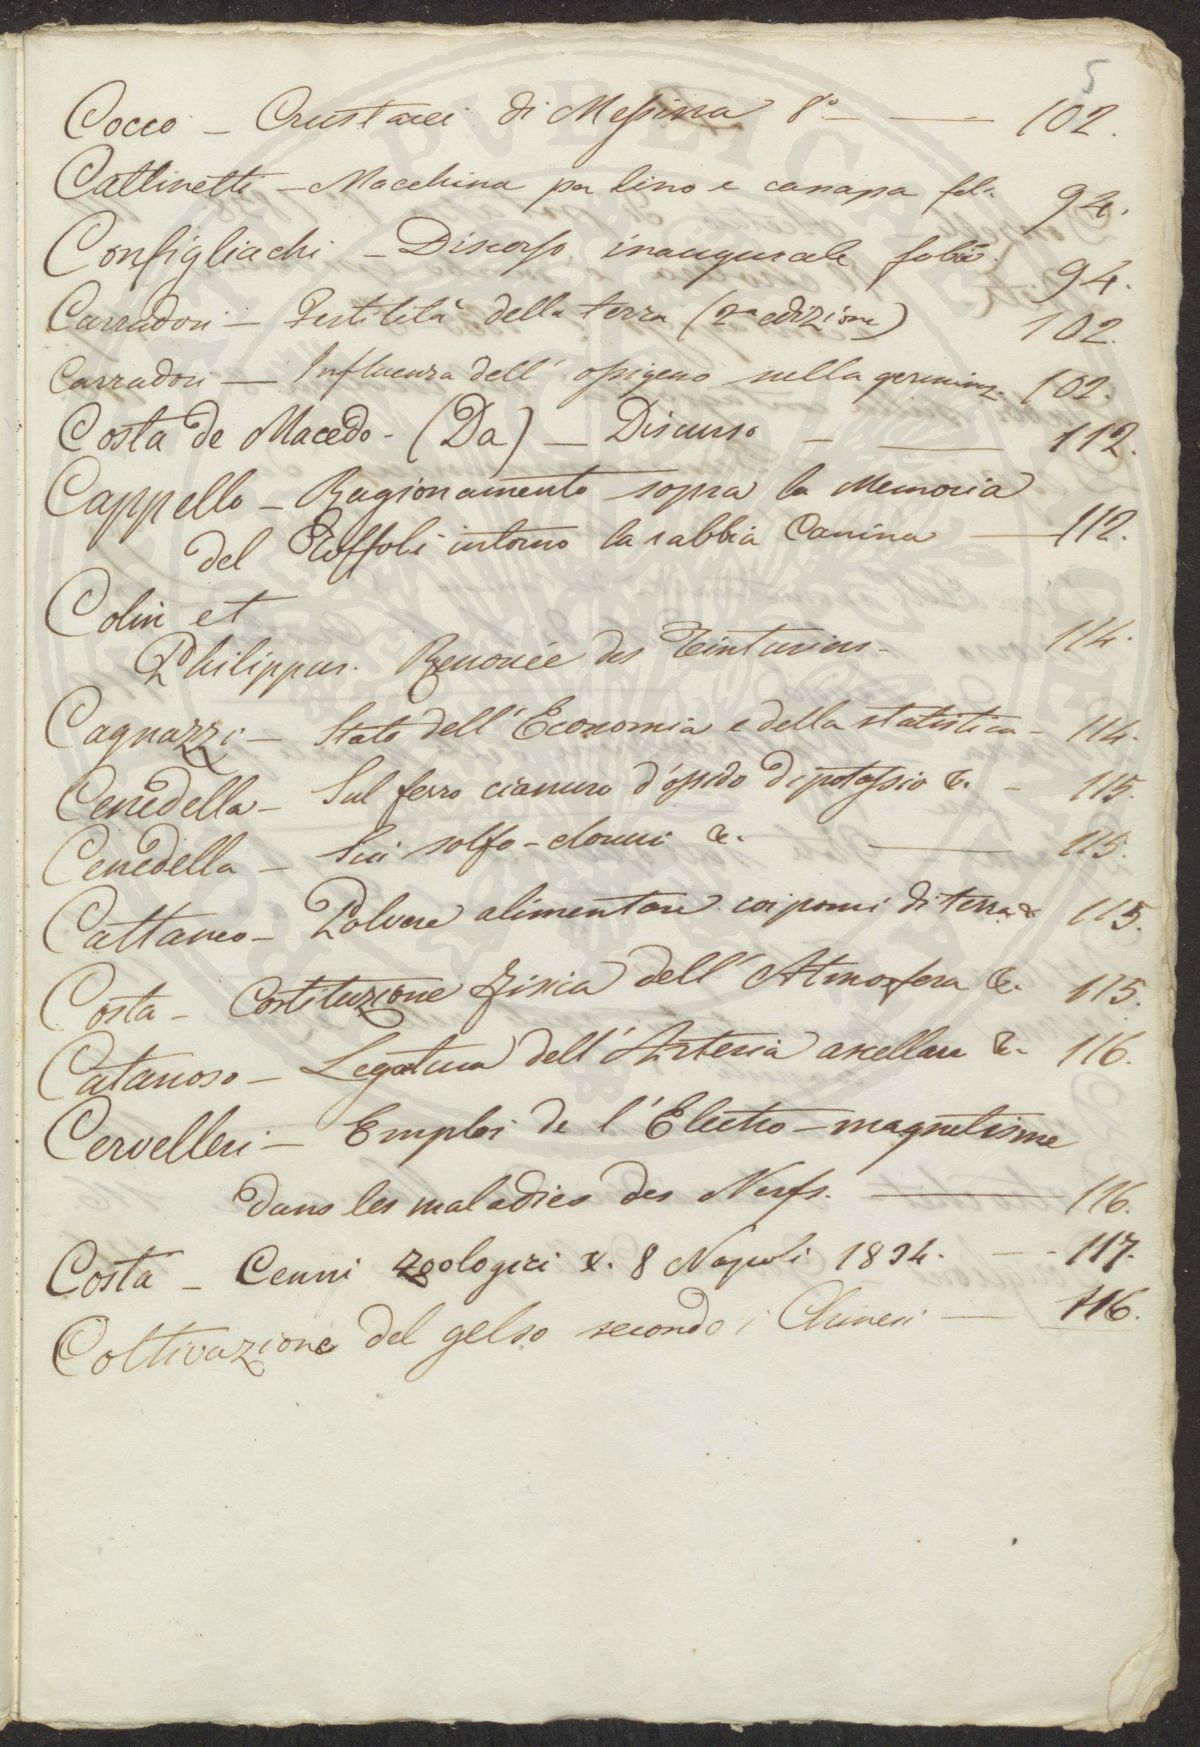 5
Cocco - Crustacei di Messina 8º - 102.
Cattinetti - Macchina per lino e canapa fol. 94.
Configliachi - Discorso inaugurale folio. 94.
Carradori - Fertilità della terra (2ª edizione) 102.
Carradori - Influenza dell' ossigeno sulla germinaz. 102.
Costa de Macedo - (Da) - Discurso - 112.
Cappello - Ragionamento sopra la Memoria
del Toffoli intorno la rabbia Canina - 112.
Colin et
Philippar. Renouée des Teinturiers - 114.
Cagnazzi - Stato dell' Economia e della statistica - 114.
Cenedella - Sul ferro cianuro d'ossido di potassio &. - 115.
Cenedella - Sui solfo-cloruri &. - 115.
Cattaneo - Polvere alimentare coi pomi di terra & 115.
Costa - Costituzione Fisica dell' Atmosfera &. 115.
Catanoso - Legatura dell' Arteria ascellare &. 116.
Cervelleri - Emploi de l' Electro-magnetisme
dans les maladies des Nerfs. - 116.
Costa - Cenni zoologici &. 8 Napoli 1834. - 117.
Coltivazione del gelso secondo i Chinesi - 116.